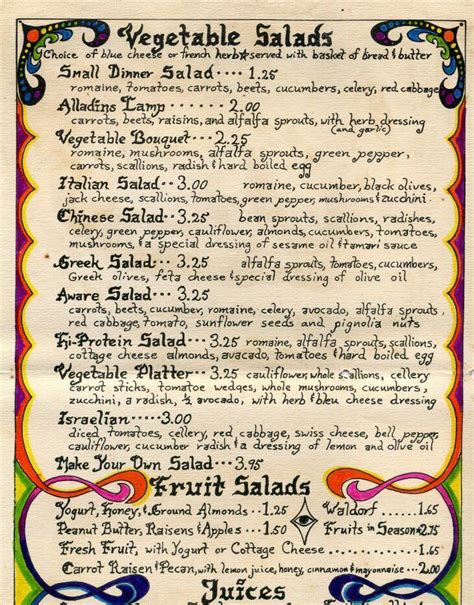 Vegetable Salads
Choice of blue cheese or french herb★served with basket of bread & butter
Small Dinner Salad···· 1.25
romaine, tomatoes, carrots, beets, cucumbers, celery, red cabbage
Alladins Lamp ······· 2.00
carrots, beets, raisins, and alfalfa sprouts, with herb dressing
(and garlic)
Vegetable Bouquet···· 2.25
romaine, mushrooms, alfalfa sprouts, green pepper,
carrots, scallions, radish & hard boiled egg
Italian Salad··3.00 romaine, cucumber, black olives,
jack cheese, scallions, tomatoes, green pepper, mushrooms & zucchini.
Chinese Salad··3.25 bean sprouts, scallions, radishes,
celery, green pepper, cauliflower, almonds, cucumbers, tomatoes,
mushrooms, & a special dressing of sesame oil & tamari sauce
Greek Salad ··3.25 alfalfa sprouts, tomatoes, cucumbers,
Greek olives, feta cheese & special dressing of olive oil
Aware Salad···3.25
carrots, beets, cucumber, romaine, celery, avocado, alfalfa sprouts,
red cabbage, tomato, sunflower seeds and pignolia nuts
Hi-Protein Salad···3.25 romaine, alfalfa sprouts, scallions,
cottage cheese almonds, avacado, tomatoes & hard boiled egg
Vegetable Platter··· 3.25 cauliflower, whole scallions, cellery
carrot sticks, tomatoe wedges, whole mushrooms, cucumbers,
zucchini, a radish, ½ avocado, with herb & bleu cheese dressing
Israelian····3.00
diced tomatoes, cellery, red cabbage, swiss cheese, bell pepper,
cauliflower, cucumber radish & a dressing of lemon and olive oil
Make Your Own Salad···3.95
Fruit Salads
Yogurt, Honey, & Ground Almonds · 1.25 Waldorf ..... 1.65
Peanut Butter, Raisens & Apples ··1.50 Fruits in Season 2.75
Fresh Fruit, with Yogurt or Cottage Cheese ............ 1.65
Carrot Raisen & Pecan, with lemon juice, honey, cinnamon & mayonnaise ···· 2.00
Juices